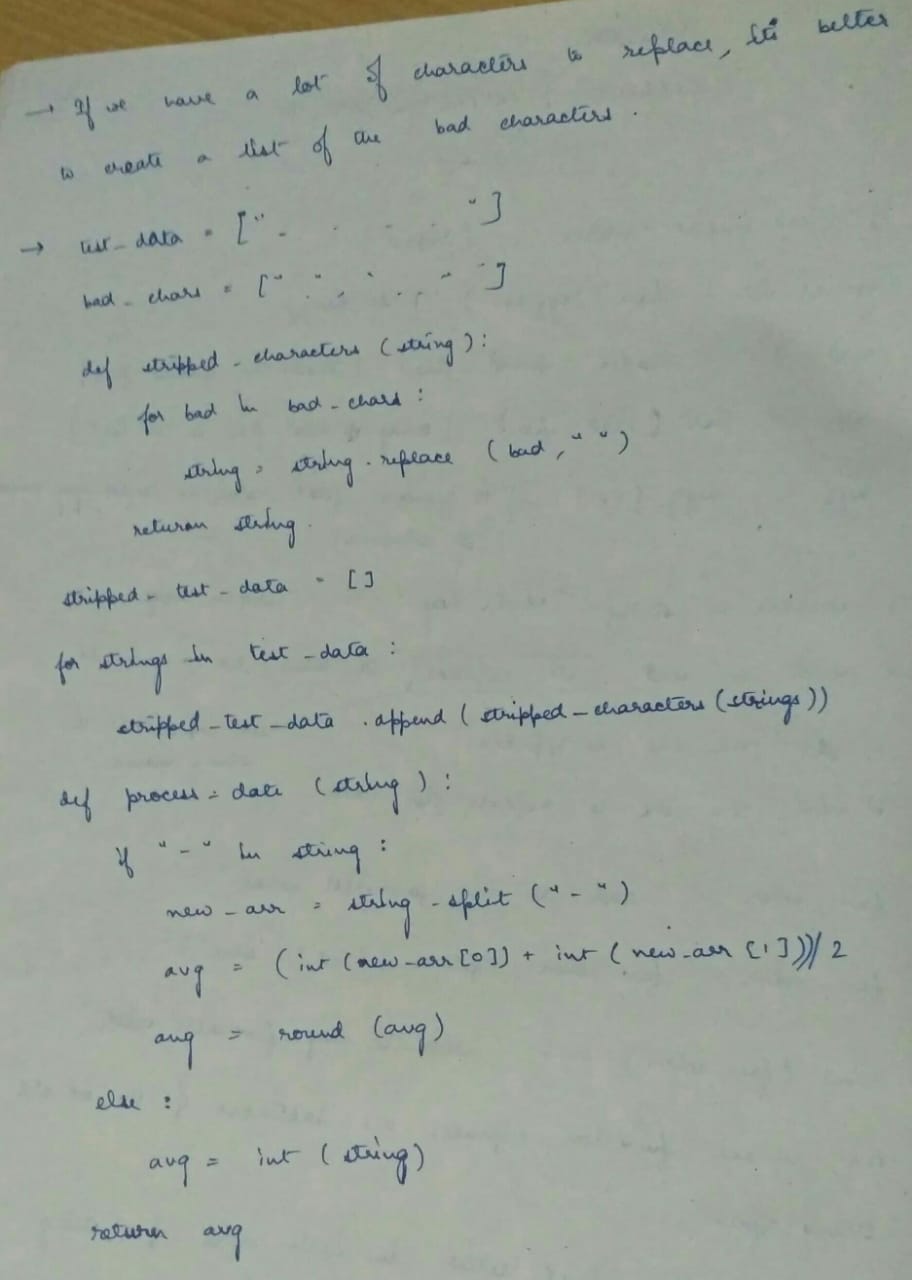 → If we have a lot of characters to replace, its better
to create a list of the bad characters.
→ test_data = [" - . . . . "]
bad_chars = [" " . ", ` . . " "]
def stripped_characters (string):
for bad in bad_chars :
string = string.replace (bad, " ")
return string.
stripped_test_data = []
for strings in test_data :
stripped_test_data .append (stripped_characters (strings))
def process_date (string) :
if "-" in string :
new_arr = string.split ("-")
avg = (int (new_arr [0]) + int (new_arr [1]))/ 2
avg = round (avg)
else :
avg = int (string)
return avg